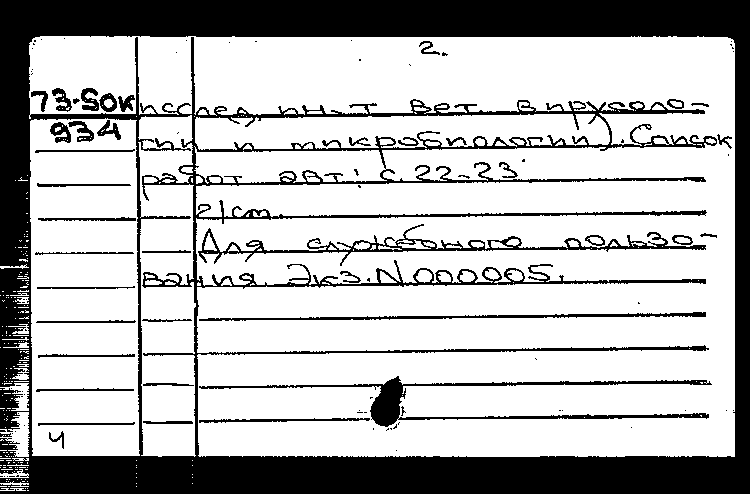 2.
73-50к исслед. ин-т вет. вирусоло-
934 гии и микробиологии). Список
работ авт.: с. 22-23
21 см.
Для служебного пользо-
вания. Экз. N 000005.
Ч